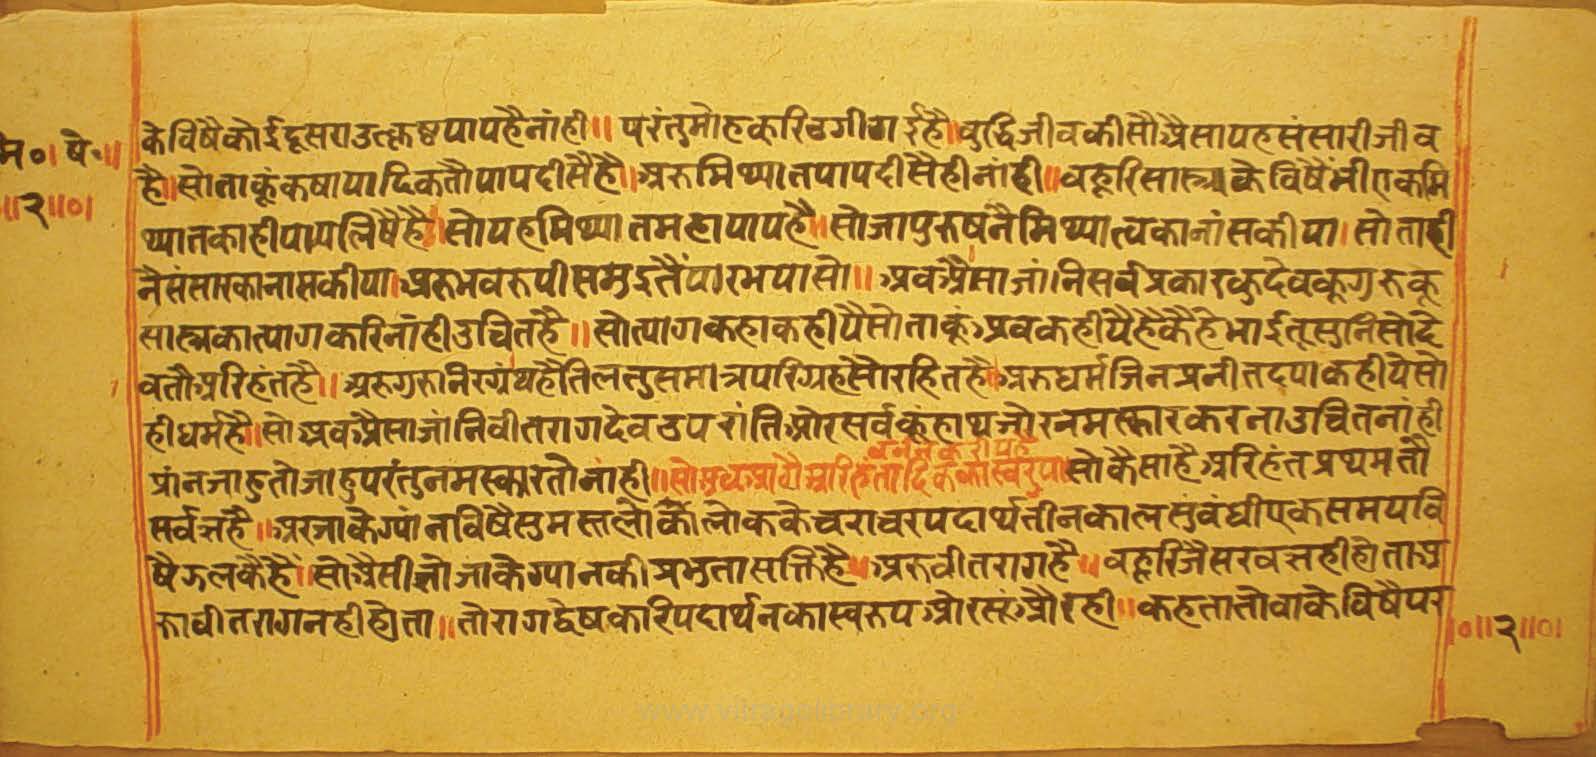 के विषै कोई दूसरा उत्कृष्ट पाप है नांही॥ परंतु मोह करि ठगी गई है॥ बुद्धि जीव की सौ अैसा यह संसारी जीव
मे०। षे॰॥
है॥ सो ताकूं कषायादिक तौ पाप दीसै है॥ अरु मिथ्यात पाप दीसै ही नांही॥ बहूरि सास्त्र के विषैं भी एक मि
॥२॥०।
थ्यात का ही पाप लिषै है॥ सो यह मिथ्यात महा पाप है॥ सो जा पुरुष नै मिथ्यात्व का नांस कीया। सो ता ही
नै संसार का नास कीया॥ अरु भव रुपी समुद्र तैं पार भया सो॥ अव अैसा जांनि सर्व प्रकार कुदेव कूगुरु कू
सास्त्र का त्याग करिनां ही उचित है॥ सो त्याग कहा कहीयै सो ताकूं अव कहीयै है कै हे भाई तू सुनि सो दे
व तौ अरिहंत है॥ अरु गुरु निरग्रंथ है तिल तुस मात्र परिग्रह सौ रहित है॥ अरु धर्म जिन प्रनीत दया कहीये सो
ही धर्म है॥ सो अव अैसा जांनि वीतराग देव उपरांति और सर्व कूं हाथ जोर नमस्कार करना उचित नांही
प्रांन जाहु तो जाहु परंतु नमस्कार तो नांही॥ सो अव आगै अरिहंतादिक का स्वरुप॥ सो कैसा है अरिहंत प्रथम तौ
सर्वज्ञ है॥ अर जाके ग्यांन विषै समस्त लोकालोक के चराचर पदार्थ तीन काल सुंवंधी एक समय वि
षै झलकै है॥ सो अैसी तो जाके ग्यान की प्रभुता सक्ति है॥ अरु वीतराग है॥ बहूरि जै सरवज्ञ ही होता अ
रु वीतराग नही होता॥ तो राग द्वेष करि पदार्थन का स्वरुप ओर सूं और ही॥ कहता तो वाके विषै पर
।०॥२॥०।
www.vitragelibrary.org